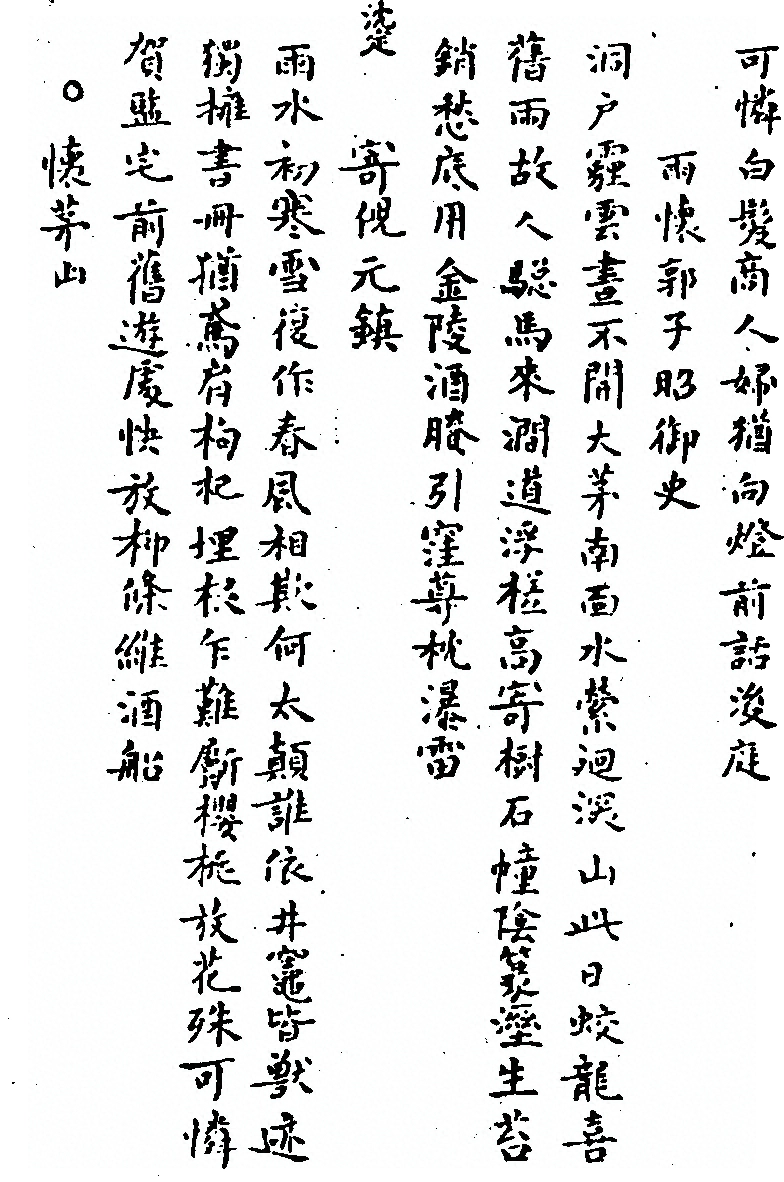 可憐白髮商人婦猶向燈前話後庭
雨懷郭子昭御史
洞戶霾雲晝不開大茅南面水縈迴深山此日蛟龍喜
舊雨故人驄馬來澗道浮槎高寄樹石幢陰篆溼生苔
銷愁底用金陵酒勝引窪尊枕瀑雷
寄倪元鎮
雨水初寒雪復作春風相欺何太顛誰依井竈皆獸迹
獨擁書冊猶鳶肩枸杞埋根乍難斸櫻桃放花殊可憐
賀監宅前舊遊處快放柳條維酒船
○懷茅山